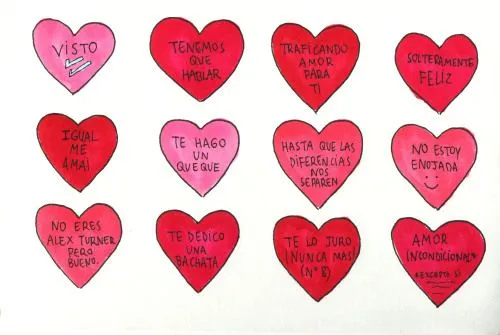 VISTO
TENEMOS
QUE
HABLAR
TRAFICANDO
AMOR
PARA
TI
SOLTERAMENTE
FELIZ
IGUAL
ME
AMAI
TE HAGO
UN
QUEQUE
HASTA QUE LAS
DIFERENCIAS
NOS
SEPAREN
NO ESTOY
ENOJADA
NO ERES
ALEX TURNER
PERO
BUENO.
TE DEDICO
UNA
BACHATA
TE LO JURO
¡NUNCA MAS!
AMOR
INCONDICIONAL*
*EXCEPTO SI